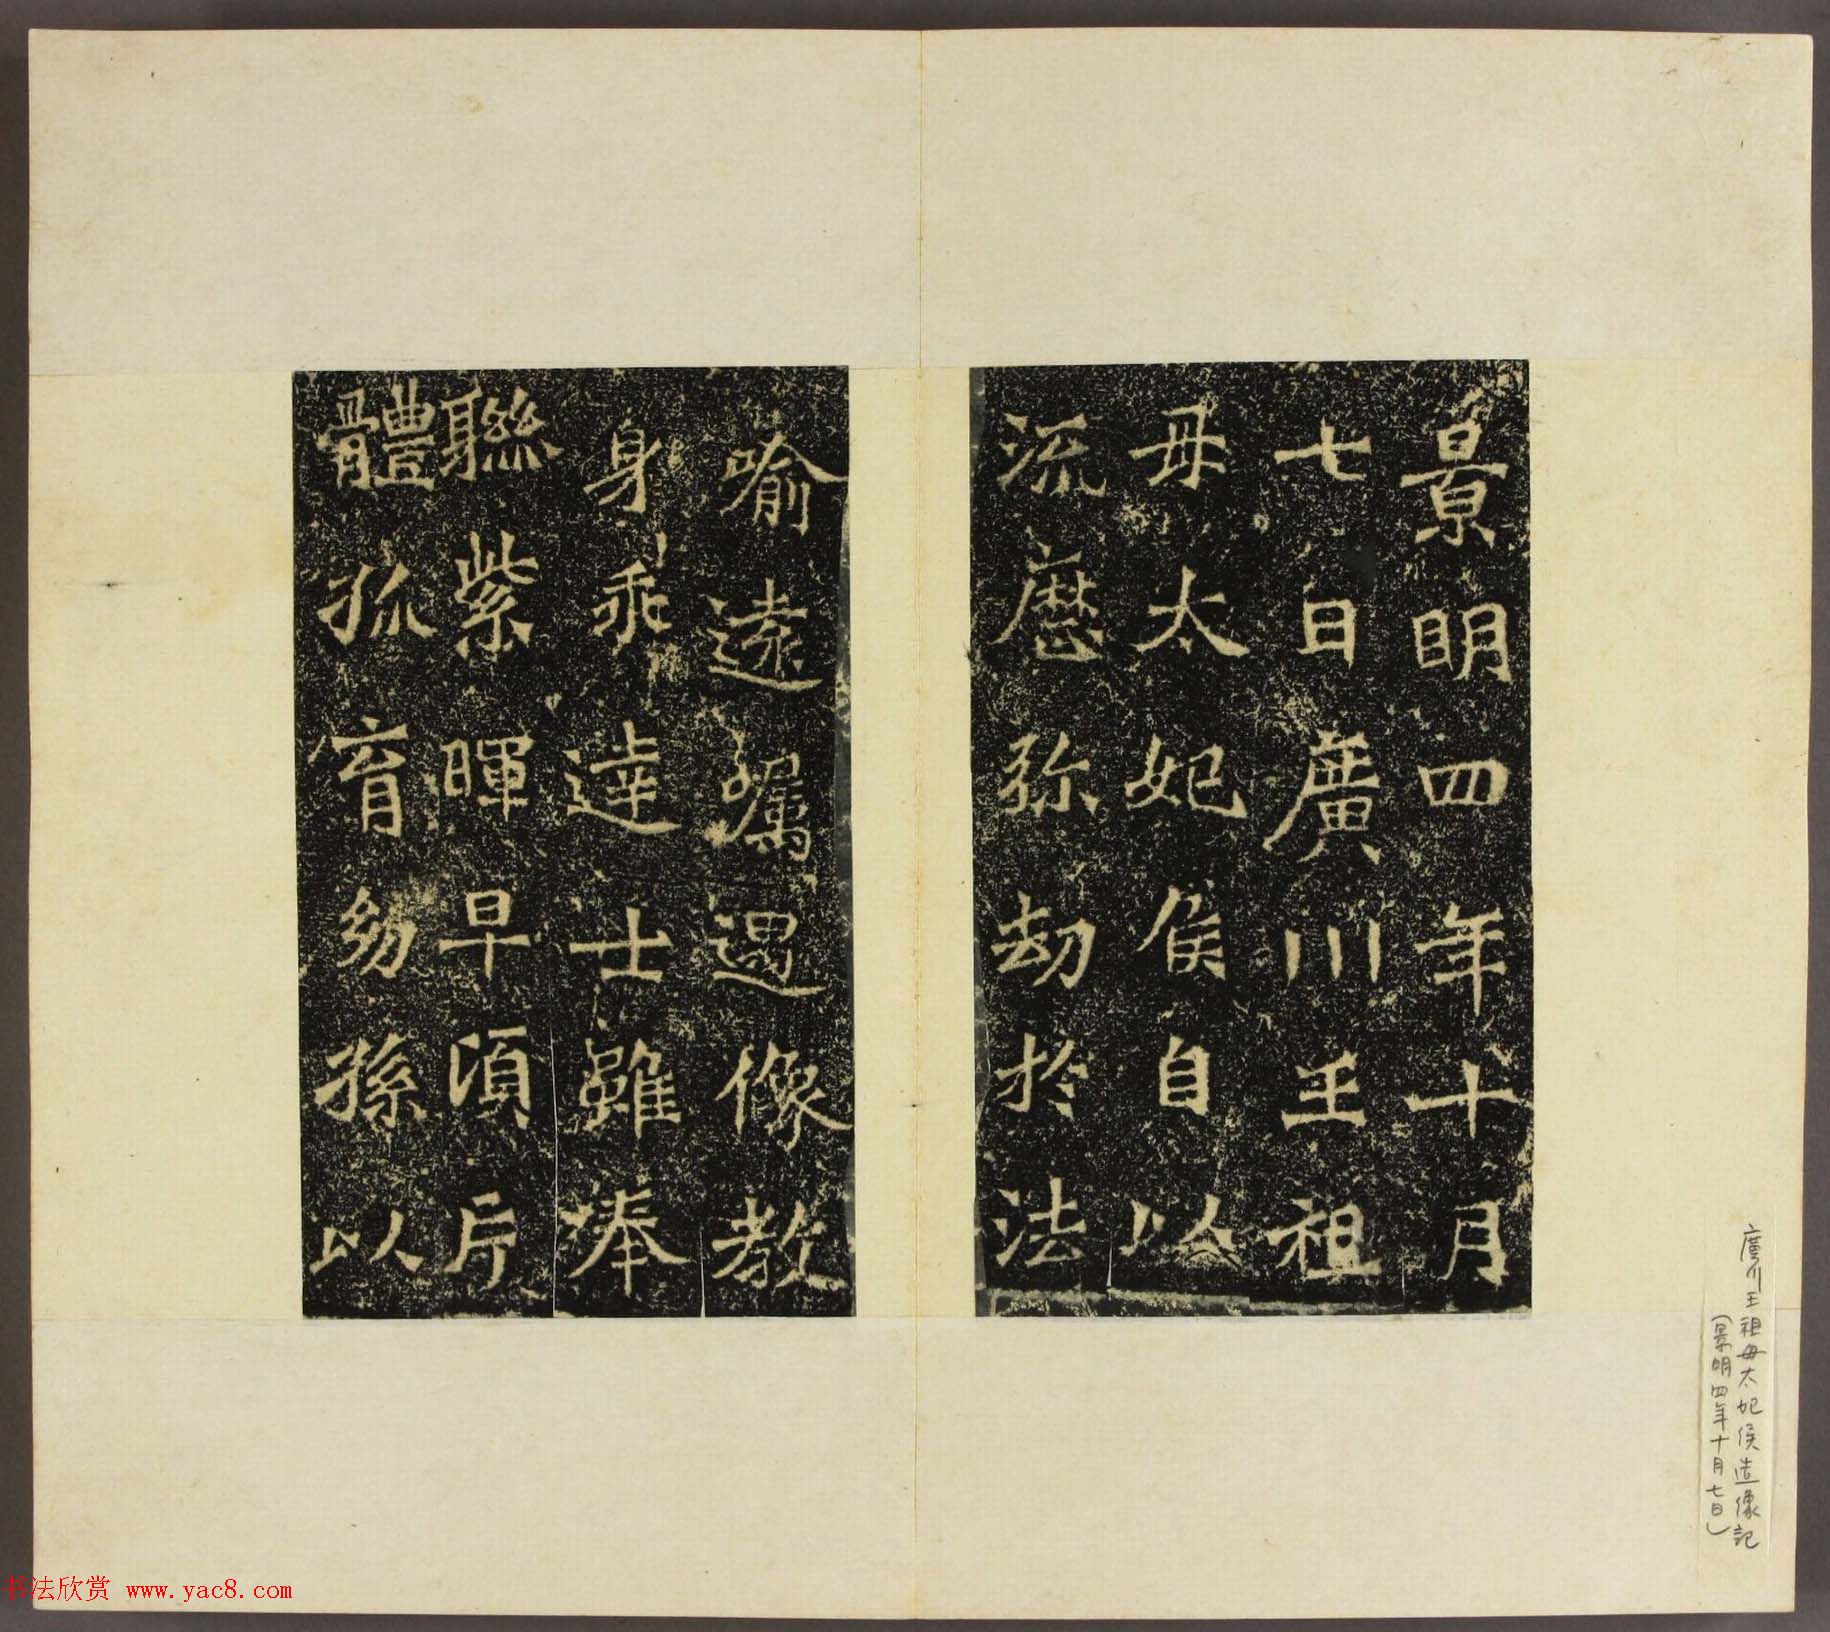 景明四年十月
七日廣川王祖
母太妃侯自以
流歷弥劫於法
喻遠囑遇像教
身乖達士雖奉
聯紫暉早頃片
體孤育幼孫以
廣川王祖母太妃侯造像記
（景明四年十月七日）
书法欣赏 www.yac8.com